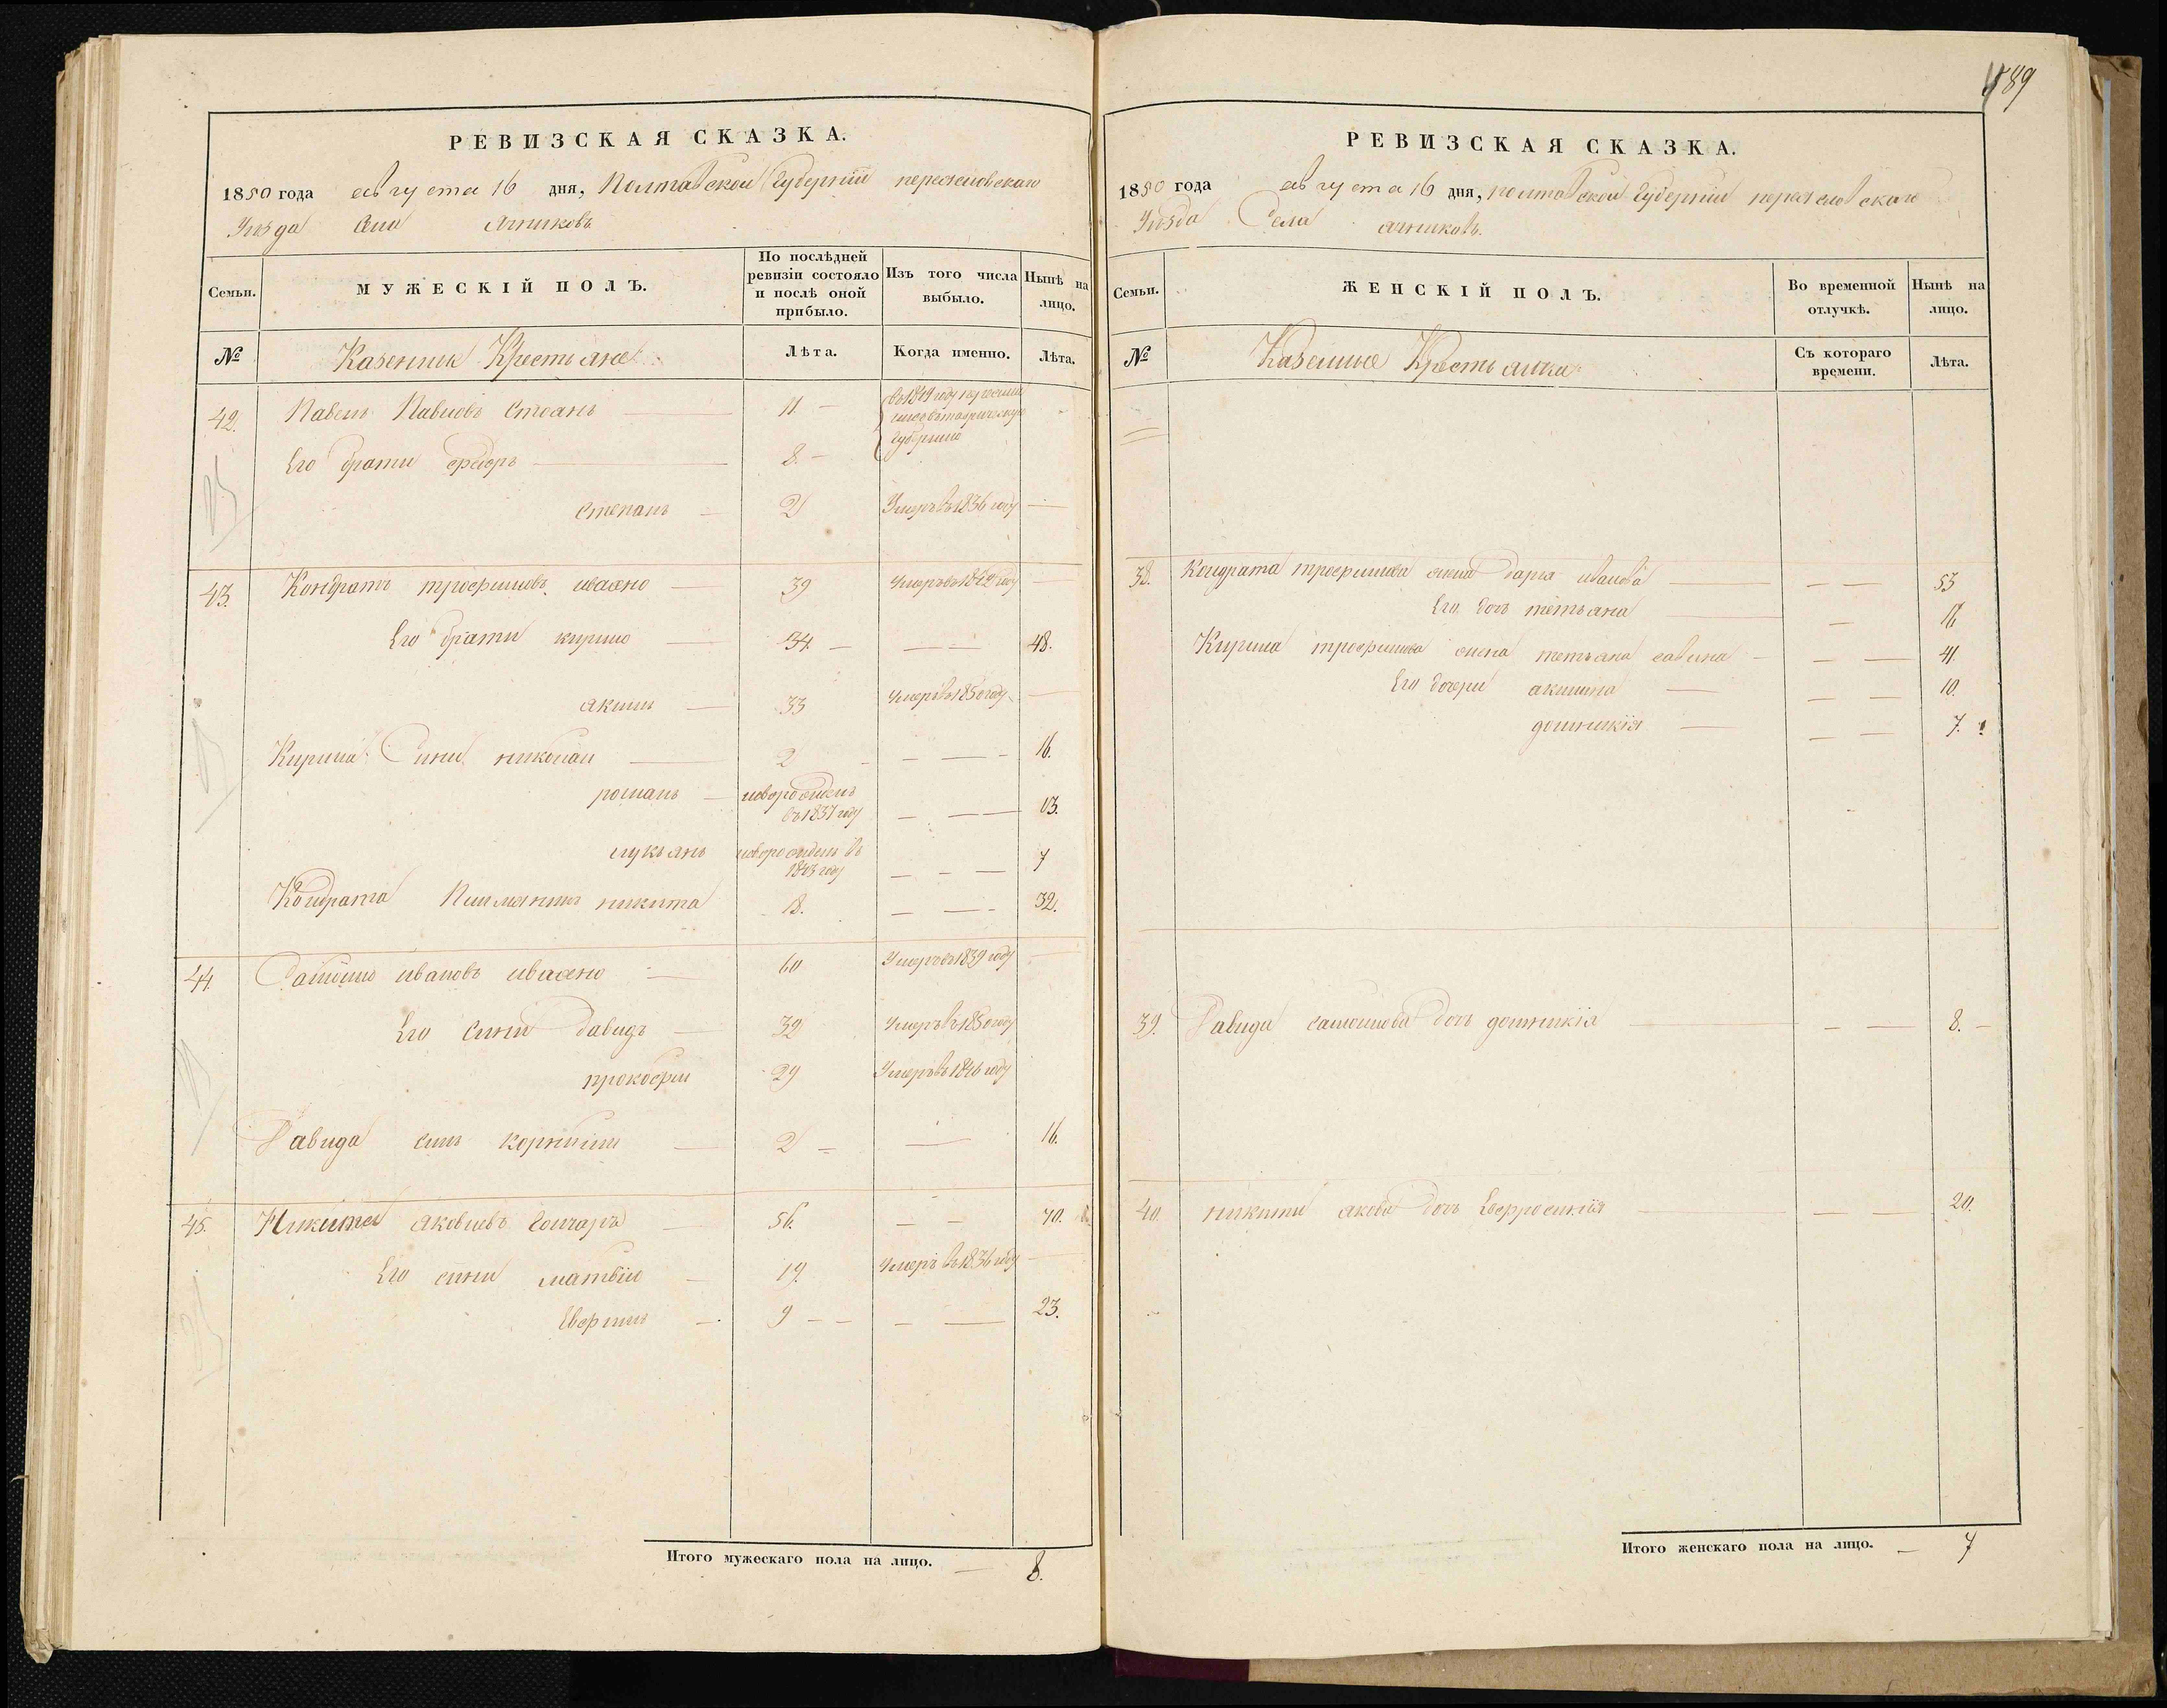 489
РЕВИЗСКАЯ СКАЗКА.
1850 года августа 16 дня, Полтавской Губернии переяславскаго
Уѣзда Села Ячниковъ
Семьи.
МУЖЕСКІЙ ПОЛЪ.
По послѣдней ревизіи состояло и послѣ оной прибыло.
Изъ того числа выбыло.
Нынѣ на лицо.
№
Казенние Крестьяне
Лѣта.
Когда именно.
Лѣта.
42. Павелъ Павловъ Стоянъ — 11 — въ 1844 году
Губернию
Его брати Федоръ — 8. —
степанъ — 2 Умеръ въ 1836 году —
43. Кондратъ трофимовъ ивахно — 39 умеръ въ 1842 году —
Его брати кирило — 34 — — — 48.
акимъ — 33 умеръ въ 1850 году —
Кирила Сини николай — 2 — — — 16.
романъ — новорожденъ въ 1837 году — — — 13.
лукьянъ новорожденъ въ 1843 году — — — 7
Кондрата племяникъ никита 18. — — 32.
44. Самойло ивановъ ивахно — 60 Умеръ въ 1839 году —
Его Сини давидъ — 32 умеръ въ 1850 году
прокофій 29 Умеръ въ 1846 году
Давида синъ корнилій — 2 — — 16.
45. Никита яковлевъ Гончаръ — 56. — — 70.
Его сини матвій — 19. умеръ въ 1836 году —
— 9 — — — — 23.
Итого мужескаго пола на лицо. — 8.
РЕВИЗСКАЯ СКАЗКА.
1850 года августа 16 дня, полтавской Губернии переяславскаго
Уѣзда Села ячниковъ.
Семьи.
ЖЕНСКІЙ ПОЛЪ.
Во временной отлучкѣ.
Нынѣ на лицо.
№
Казенние Крестьянки
Съ котораго времени.
Лѣта.
38. Кондрата трофимова жена дарья иванова — — — 53
Его дочь тетьяна — — 16
Кирила трофимова жена тетьяна савина — — — 41.
Его дочери акилина — — — 10.
домникія — — — 7.
39. Давида самойлова дочь домникія — — — 8. —
40. никити якова дочь Ефросинія — — — 20.
Итого женскаго пола на лицо. — 7